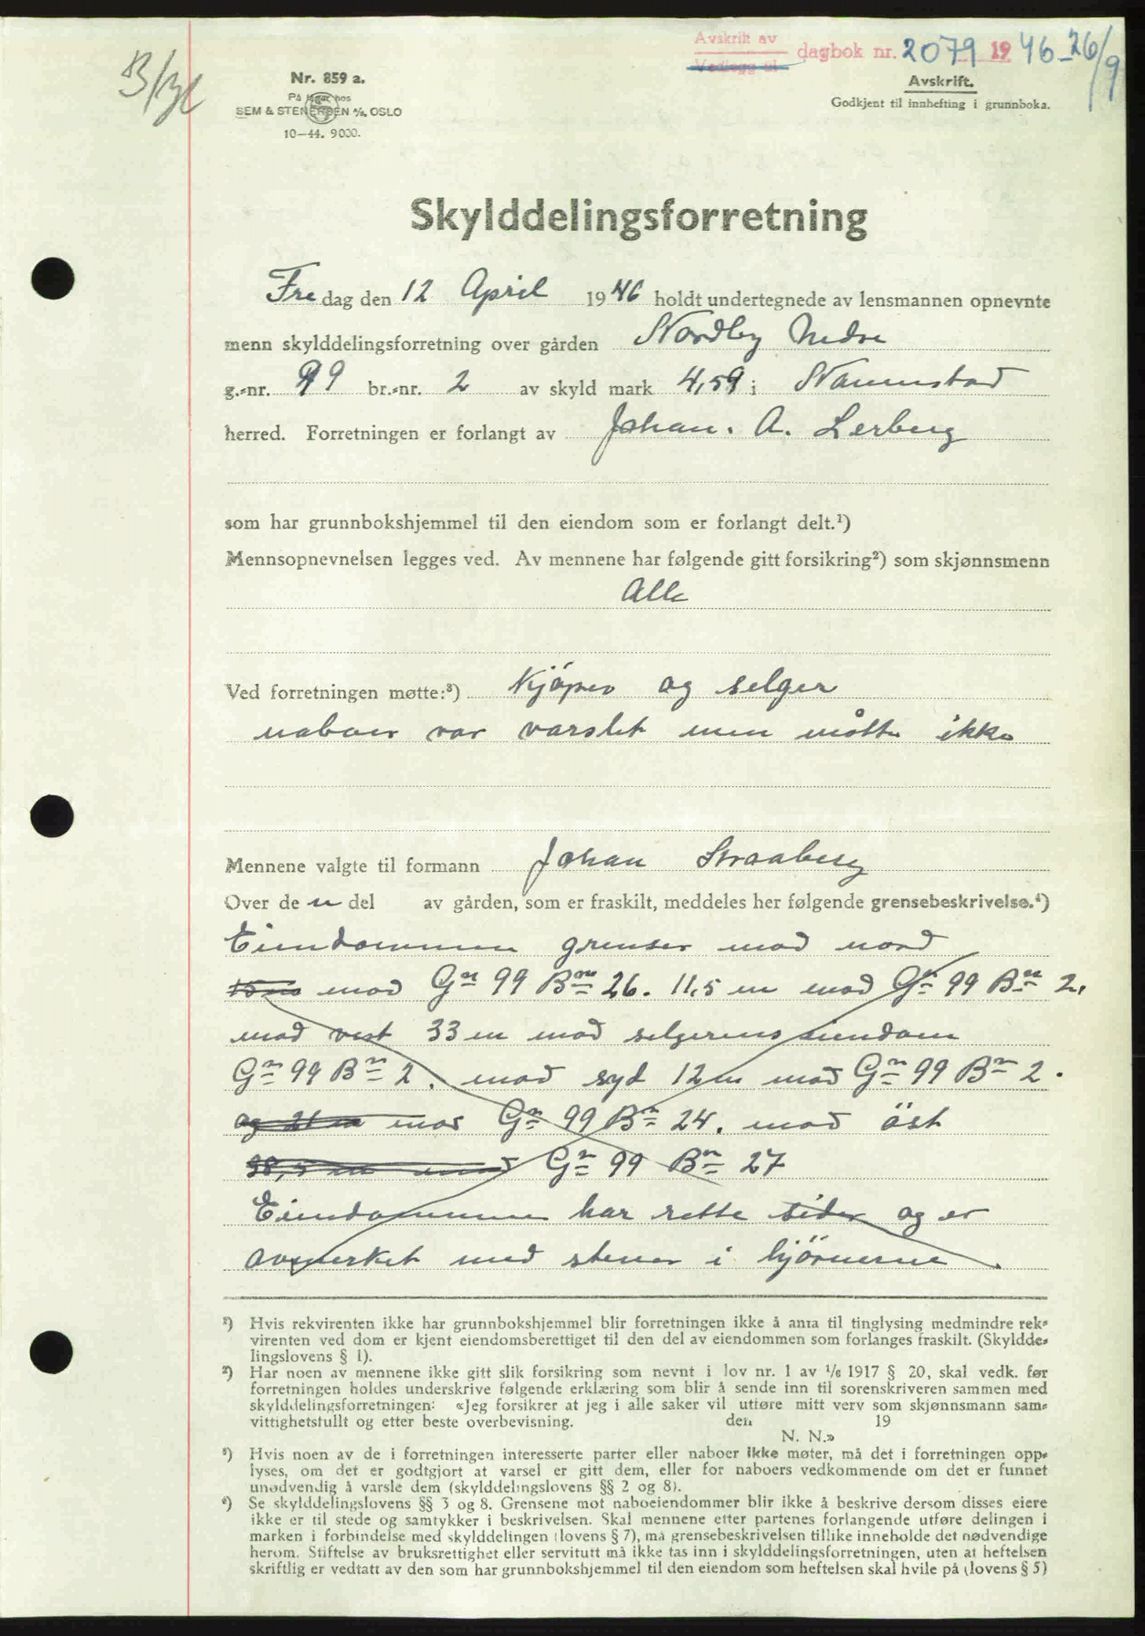 Avskrift av
Vedlegg til
dagbok nr. 2079 1946-26/9
Nr. 859 a.
På lager hos
SEM & STENERSEN A/S, OSLO
10-44. 9000.
Avskrift.
Godkjent til innhefting i grunnboka.
Skylddelingsforretning
Fredag den 12 April 1946 holdt undertegnede av lensmannen opnevnte
menn skylddelingsforretning over gården Nordby Nedre
g.-nr. 99 br.-nr. 2 av skyld mark 4,59 i Nannestad
herred. Forretningen er forlangt av Johan. A. Lerberg
som har grunnbokshjemmel til den eiendom som er forlangt delt.¹)
Mennsopnevnelsen legges ved. Av mennene har følgende gitt forsikring²) som skjønnsmenn
Alle
Ved forretningen møtte:³) Kjöper og selger
naboer var varslet men mötte ikke
Mennene valgte til formann Johan Straaberg
Over de n del av gården, som er fraskilt, meddeles her følgende grensebeskrivelse.⁴)
Eiendommen grenser mod nord
mod Gn 99 Bn 26. 11,5 m mod Gn 99 Bn 2,
mod vest 33 m mod selgerens eiendom
Gn 99 Bn 2. mod syd 12 m mod Gn 99 Bn 2.
og 21 m mod Gn 99 Bn 24. mod öst
38,5 m mod Gn 99 Bn 27
Eiendommen har rette sider og er
avmerket med stener i hjörnerne.
¹) Hvis rekvirenten ikke har grunnbokshjemmel blir forretningen ikke å anta til tinglysing medmindre rek-
virenten ved dom er kjent eiendomsberettiget til den del av eiendommen som forlanges fraskilt. (Skyldde-
lingslovens § 1).
²) Har noen av mennene ikke gitt slik forsikring som nevnt i lov nr. 1 av 1/6 1917 § 20, skal vedk. før
forretningen holdes underskrive følgende erklæring som blir å sende inn til sorenskriveren sammen med
skylddelingsforretningen: «Jeg forsikrer at jeg i alle saker vil utføre mitt verv som skjønnsmann sam-
vittighetsfullt og etter beste overbevisning. den 19
N. N.»
³) Hvis noen av de i forretningen interesserte parter eller naboer ikke møter, må det i forretningen opp-
lyses, om det er godtgjort at varsel er gitt dem, eller for naboers vedkommende om det er funnet
unødvendig å varsle dem (skylddelingslovens §§ 2 og 8).
⁴) Se skylddelingslovens §§ 3 og 8. Grensene mot naboeiendommer blir ikke å beskrive dersom disses eiere
ikke er til stede og samtykker i beskrivelsen. Skal mennene etter partenes forlangende utføre delingen i
marken i forbindelse med skylddelingen (lovens § 7), må grensebeskrivelsen tillike inneholde det nødvendige
herom. Stiftelse av bruksrettighet eller servitutt må ikke tas inn i skylddelingsforretningen, uten at heftelsen
skriftlig er vedtatt av den som har grunnbokshjemmel til den eiendom som heftelsen skal hvile på (lovens § 5)